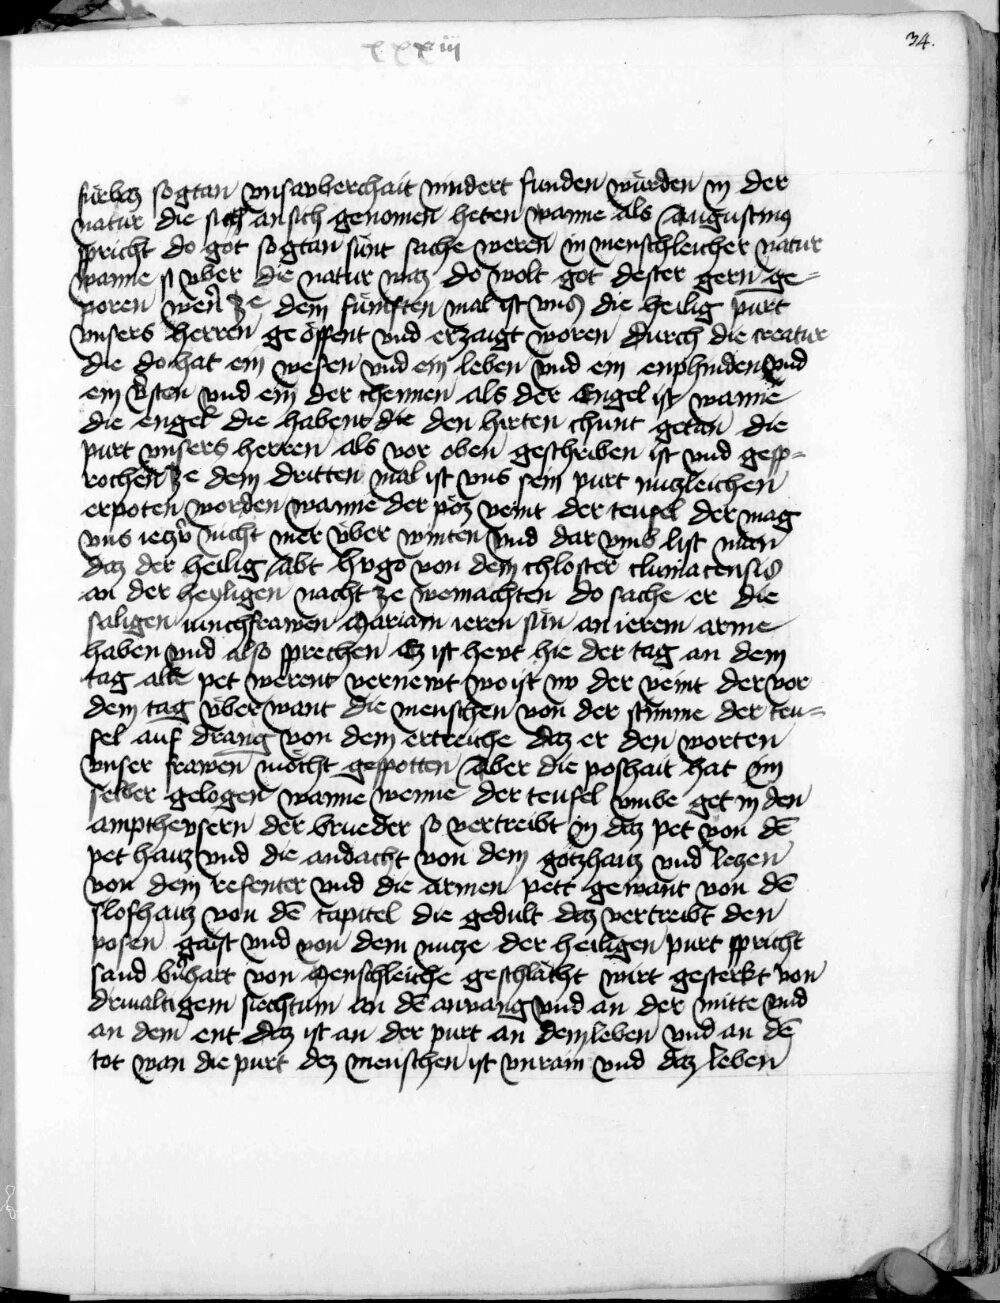 xxxiii
34.
fürbaz sogtan vnsauberchait nindert funden würden in der
natur die sich an sich genomen heten wanne als Augustinus
spricht do got sogtan sünt sache weren in menschleicher natur
wanne si vber die natur waz do wolt got dester gern ge=
poren wern ze dem fümften mal ist vns die heilig purt
vnsers herren geöffent vnd erzaigt woren durch die creatur
die do hat ein wesen vnd ein leben vnd ein enphinden vnd
ein vsten vnd ein der chennen als der Engel ist wanne
die engel die habent die den hirten chunt getan die
purt vnsers herren als vor oben geschriben ist vnd gesp=
rochen ze dem dritten mal ist vns sein purt nuzleichen
erpoten worden wanne der pöz veint der teufel der mag
vns ieczu nicht mer über winten vnd dar vmb list man
daz der heilig Abt hugo von dem chloster cluniacensis
an der heyligen nacht ze weinachten do sache er die
saligen iunchfrawen Mariam ieren sün an ierem arme
haben vnd also sprechen Ez ist hevt hie der tag an dem
tag alle pet werent vernewt wo ist nv der veint der vor
dem tag über want die menschen von der stimme der teu=
fel auf drang von dem ertreiche daz er den worten
vnser frawen möcht gespotten Aber die poshait hat im
selber gelogen wanne wenne der teufel vmbe get in den
ampthevsern der brueder so vertreibt in daz pet von dē
pet hauz vnd die andacht von dem gotzhauz vnd lezen
von dem refenter vnd die armen pett gewant von dē
slofhauz von dē capitel die gedult daz vertreibt den
posen gaist vnd von dem nucze der heiligen purt spricht
sand bnhart von Menschleiche geschlächt wirt gesterkt von
driualtigem siechtum an dē anuang vnd an der mitte vnd
an dem ent daz ist an der purt an dem leben vnd an dē
tot wan die purt dez menschen ist vnrain vnd daz leben